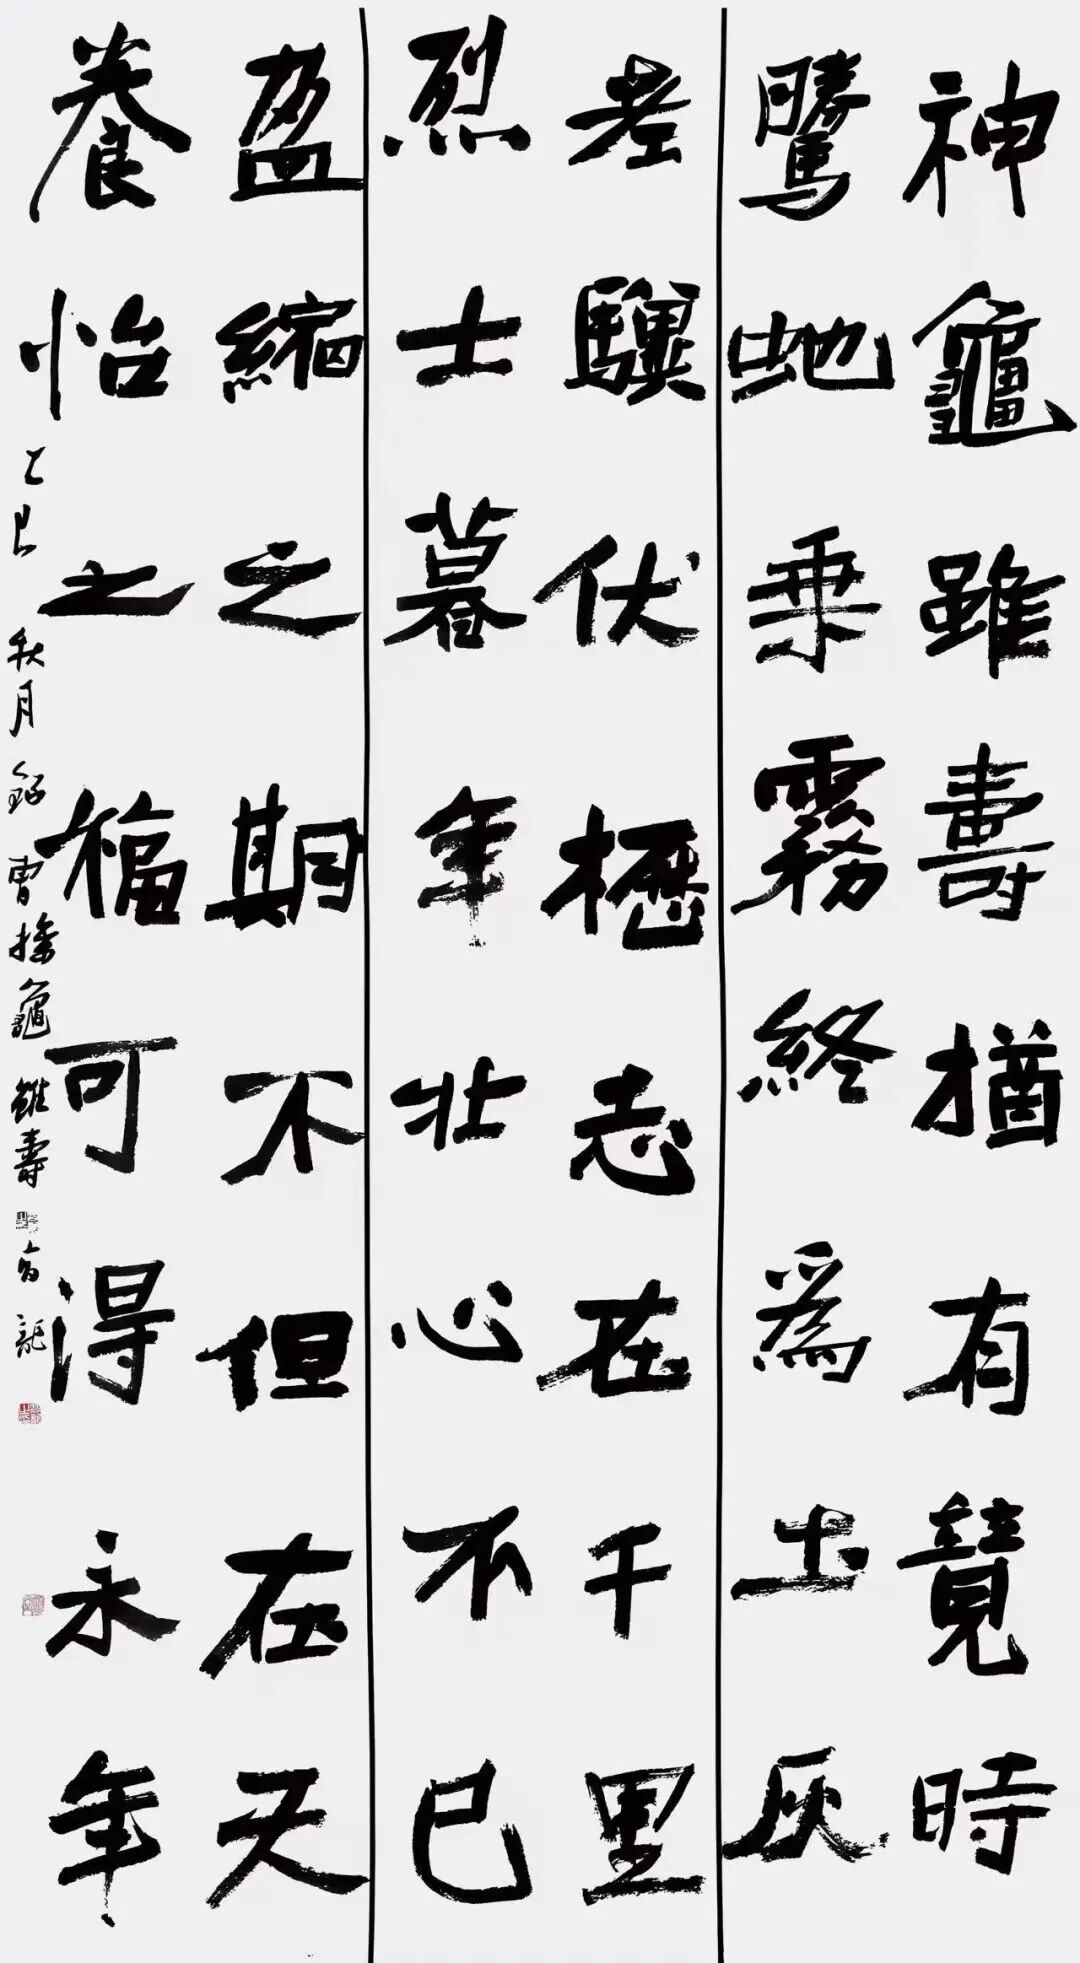 神龜雖壽猶有競時
騰虵乘霧終爲土灰
老驥伏櫪志在千里
烈士暮年壯心不已
盈縮之期不但在天
養怡之福可得永年
乙巳秋月錄曹操龜雖壽